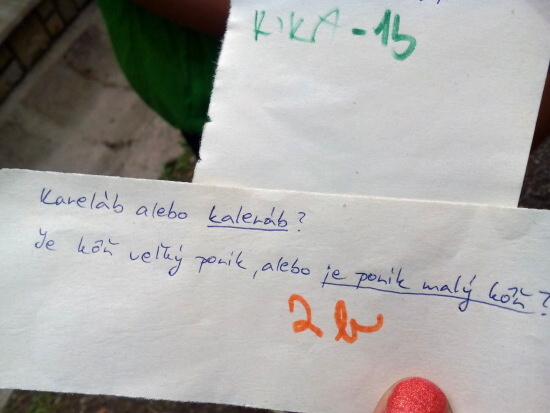 KIKA - 1b
Kareláb alebo kaleráb?
Je kôň veľký poník, alebo je poník malý kôň?
2 b